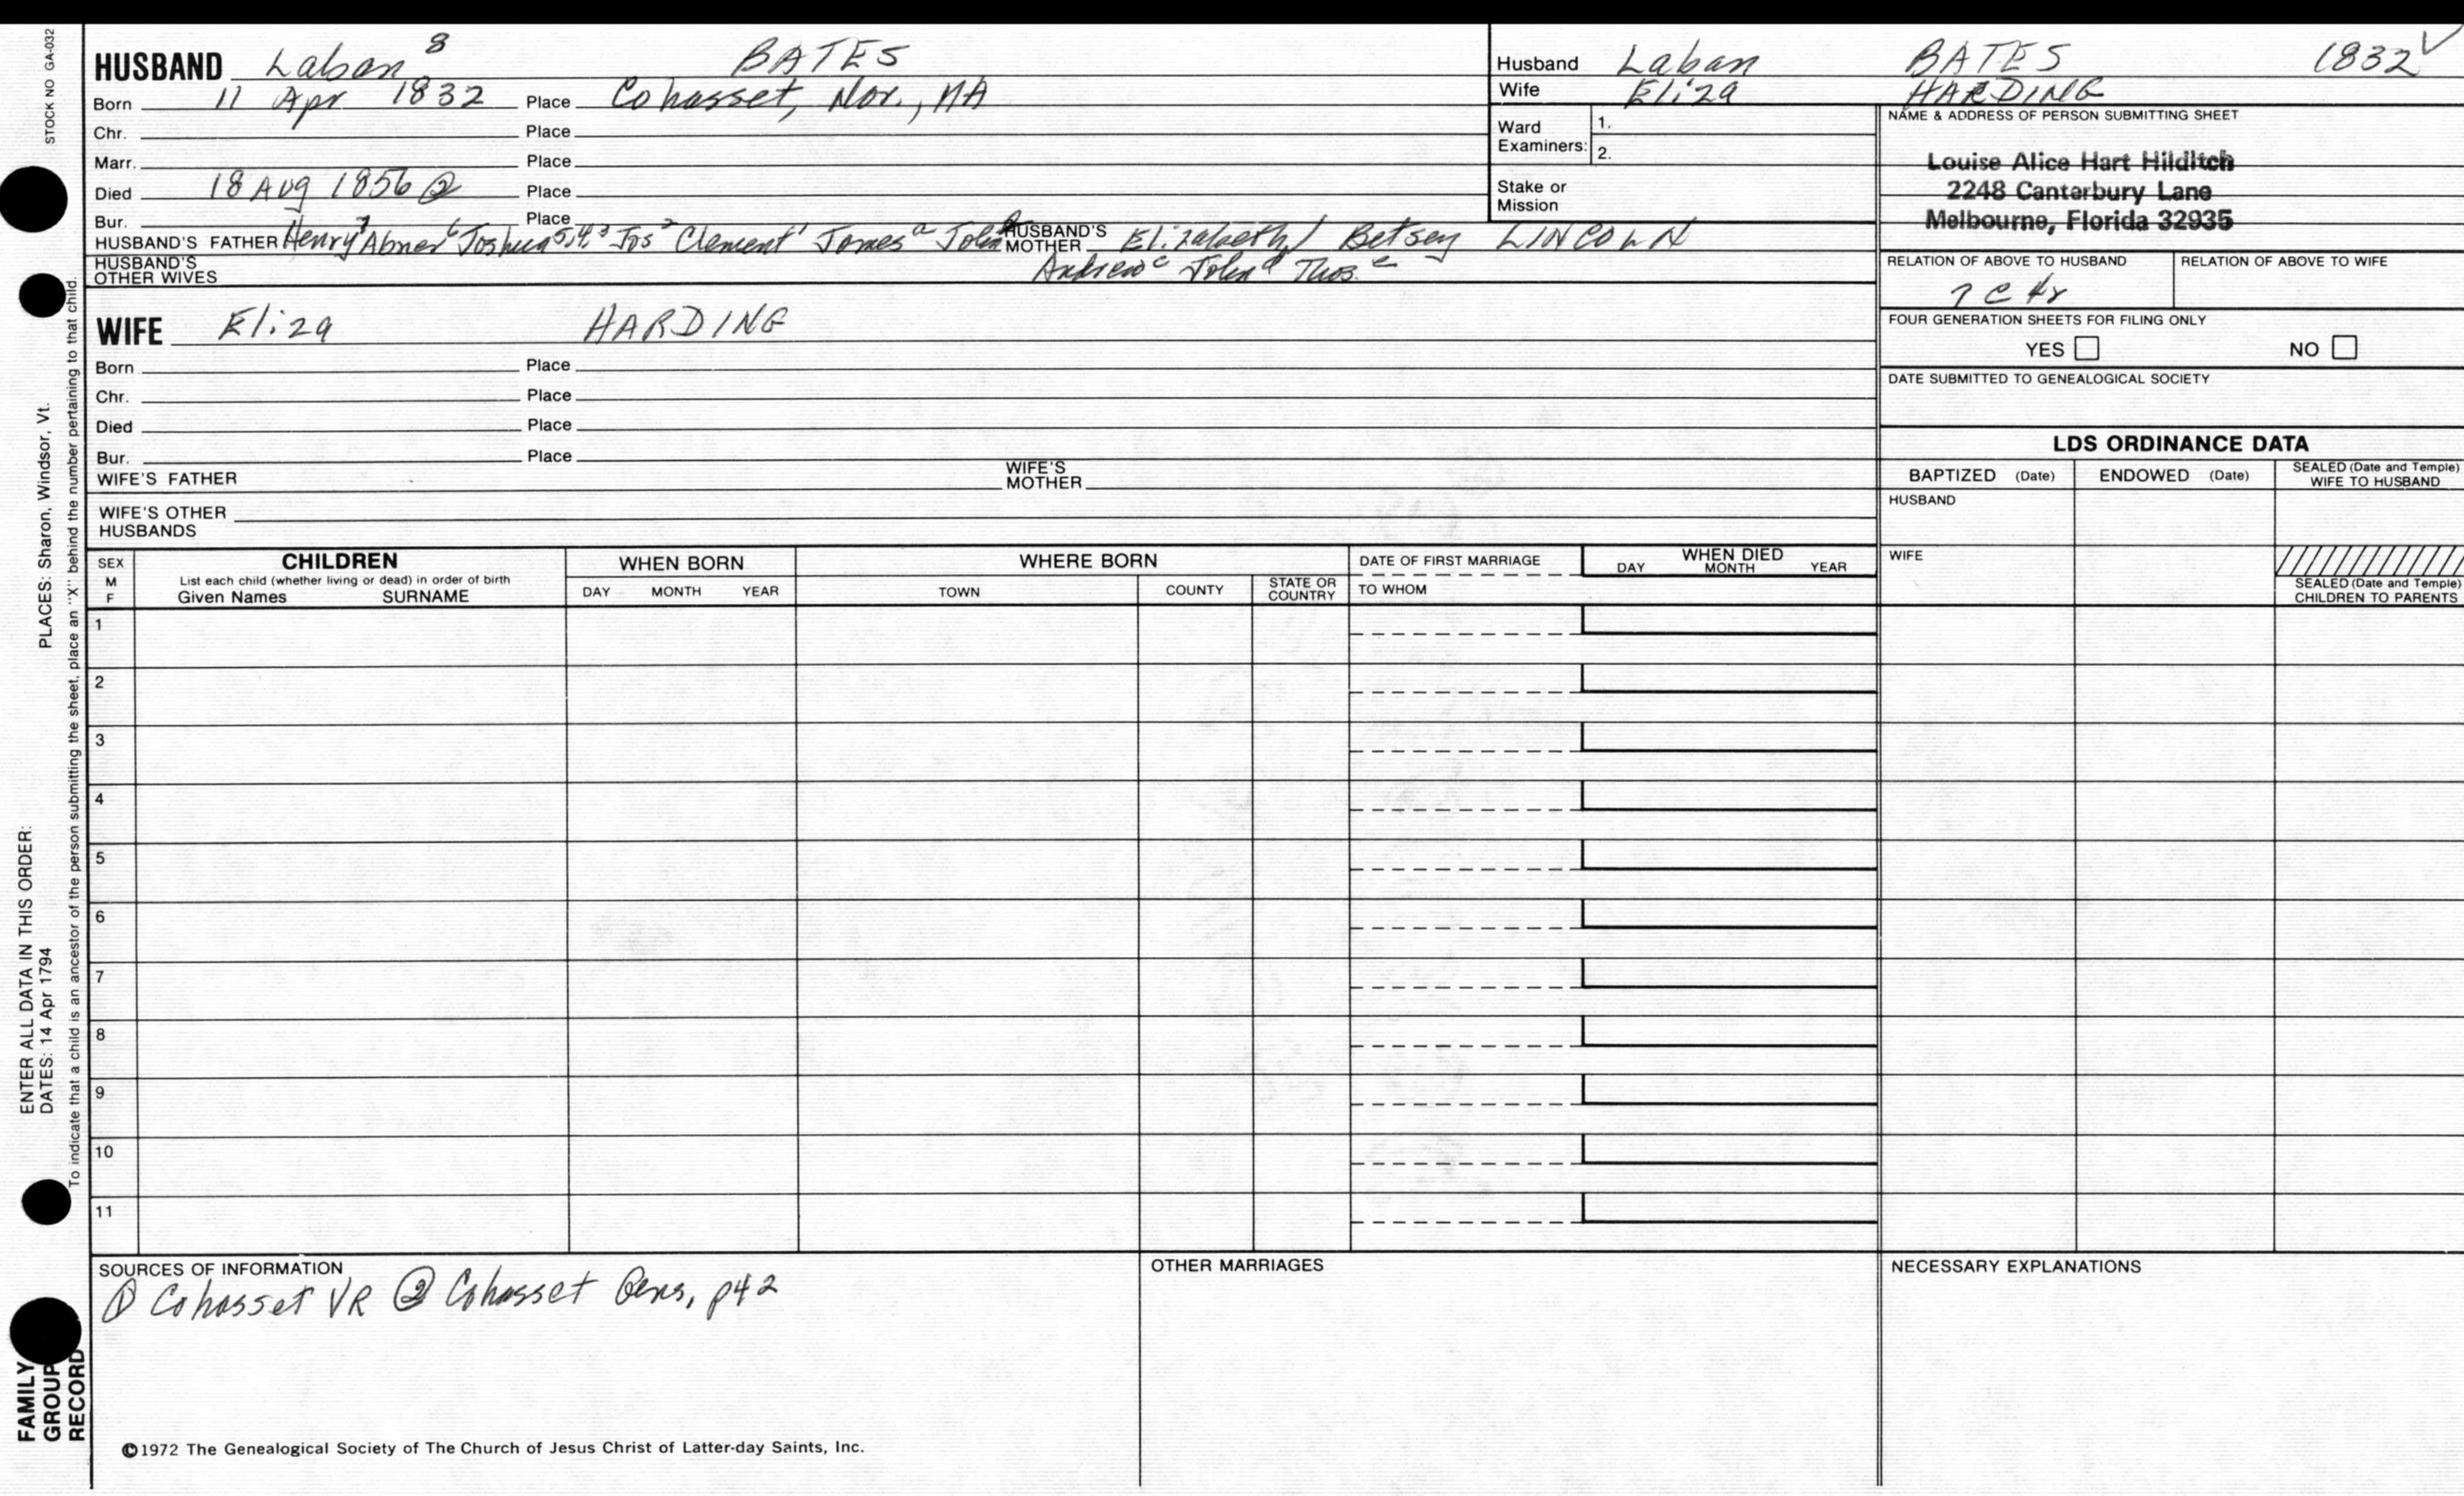 STOCK NO GA-032
HUSBAND Laban 8 BATES
Born 11 Apr 1832 Place Cohasset, Nor., MA
Chr. Place
Marr. Place
Died 18 Aug 1856 ② Place
Bur. Place
HUSBAND'S FATHER Henry 7 Abner 6 Joshua 5,4,3 Jos 2 Clement 1 James a John b HUSBAND'S MOTHER Elizabeth/ Betsey LINCOLN
HUSBAND'S OTHER WIVES Andrew c John d Thos. e
Husband Laban BATES 1832 V
Wife Eliza HARDING
Ward Examiners: 1.
2.
Stake or Mission
NAME & ADDRESS OF PERSON SUBMITTING SHEET
Louise Alice Hart Hilditch
2248 Canterbury Lane
Melbourne, Florida 32935
RELATION OF ABOVE TO HUSBAND RELATION OF ABOVE TO WIFE
7 C 4r
FOUR GENERATION SHEETS FOR FILING ONLY
YES NO
DATE SUBMITTED TO GENEALOGICAL SOCIETY
WIFE Eliza HARDING
Born Place
Chr. Place
Died Place
Bur. Place
WIFE'S FATHER WIFE'S MOTHER
WIFE'S OTHER HUSBANDS
LDS ORDINANCE DATA
BAPTIZED (Date) ENDOWED (Date) SEALED (Date and Temple) WIFE TO HUSBAND
HUSBAND
WIFE
SEALED (Date and Temple) CHILDREN TO PARENTS
SEX M F
CHILDREN
List each child (whether living or dead) in order of birth
Given Names SURNAME
WHEN BORN
DAY MONTH YEAR
WHERE BORN
TOWN COUNTY STATE OR COUNTRY
DATE OF FIRST MARRIAGE
TO WHOM
WHEN DIED
DAY MONTH YEAR
1
2
3
4
5
6
7
8
9
10
11
SOURCES OF INFORMATION
① Cohasset VR ② Cohasset Gens, p42
OTHER MARRIAGES
NECESSARY EXPLANATIONS
©1972 The Genealogical Society of The Church of Jesus Christ of Latter-day Saints, Inc.
FAMILY GROUP RECORD
ENTER ALL DATA IN THIS ORDER:
DATES: 14 Apr 1794 PLACES: Sharon, Windsor, Vt.
To indicate that a child is an ancestor of the person submitting the sheet, place an "X" behind the number pertaining to that child.